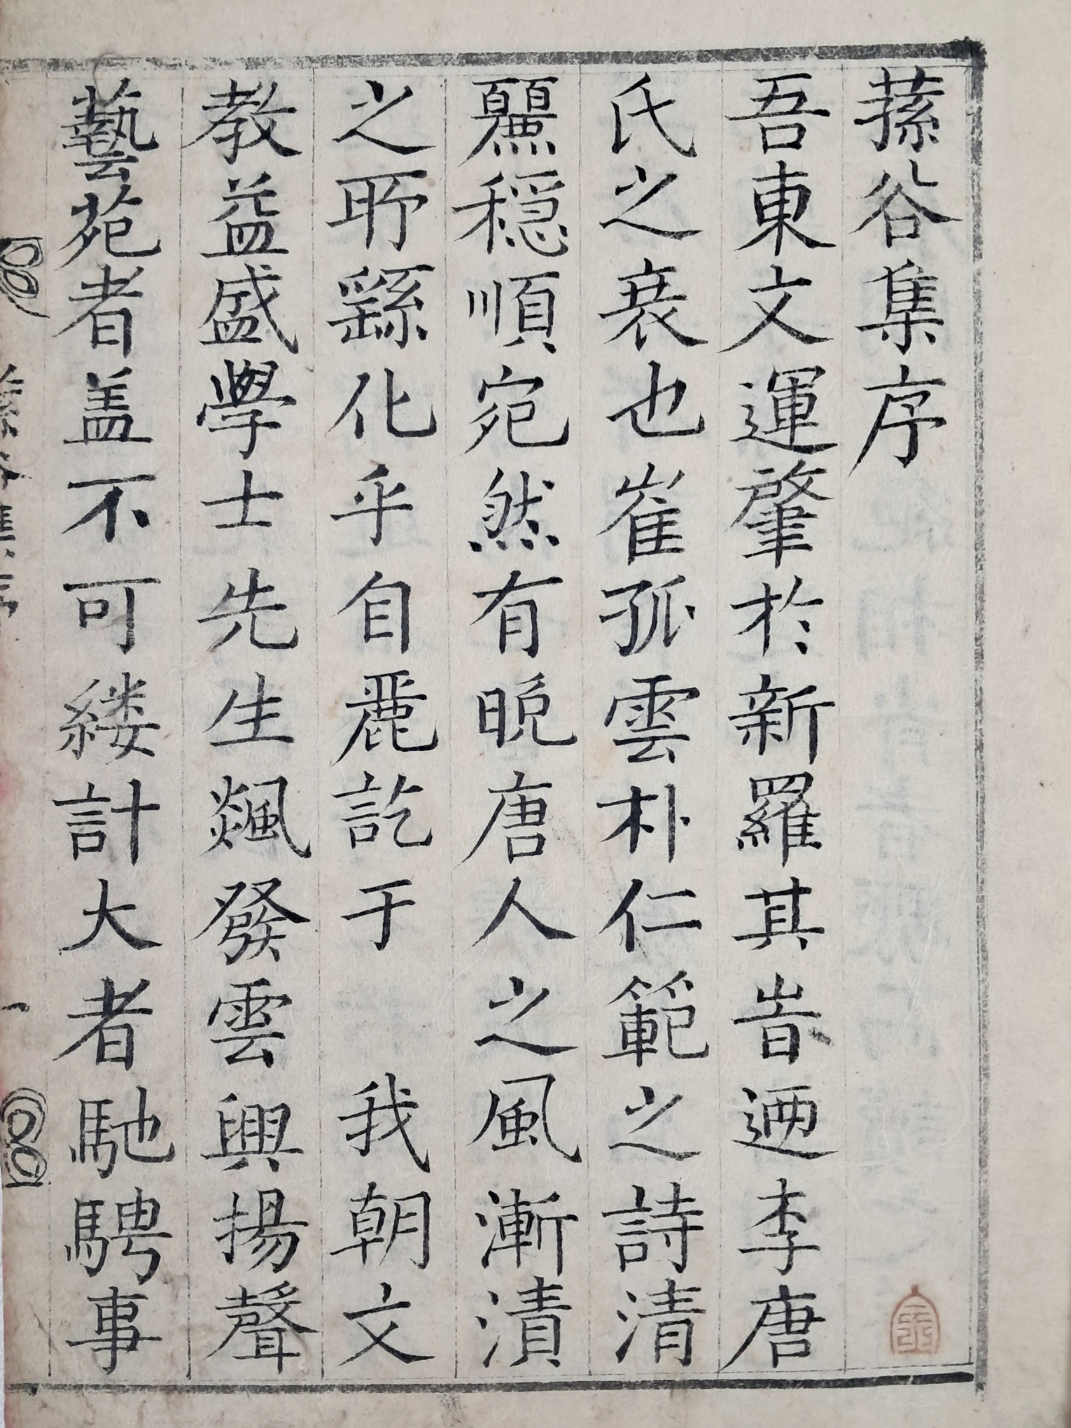 蓀谷集序
吾東文運肇於新羅其旹迺李唐
氏之衰也崔孤雲朴仁範之詩清
麗穩順宛然有晚唐人之風漸漬
之所繇化乎自麗訖于　我朝文
教益盛學士先生飈發雲興揚聲
藝苑者盖不可縷計大者馳騁事